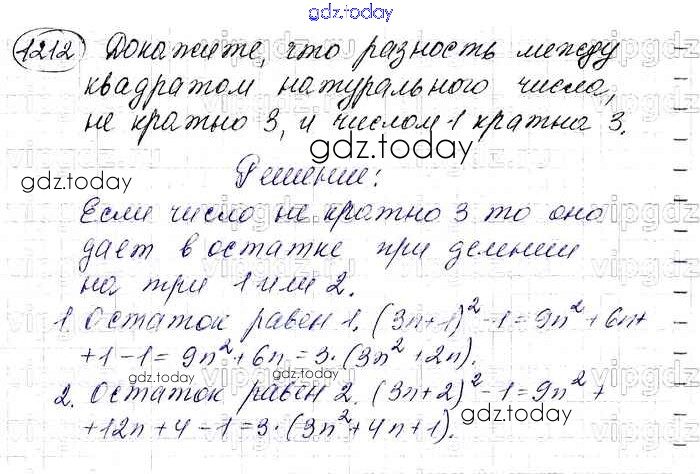 gdz.today
1212 Докажите, что разность между
квадратом натурального числа,
не кратно 3, и числом 1 кратна 3.
gdz.today
Решение:
gdz.today
Если число не кратно 3 то оно
дает в остатке при делении
на три 1 или 2.
1. Остаток равен 1. (3n+1)² -1=9n²+6n+
+1-1= 9n²+6n=3·(3n²+2n).
gdz.today
2. Остаток равен 2. (3n+2)²-1=9n²+
gdz.today
+12n+4-1=3·(3n²+4n+1).